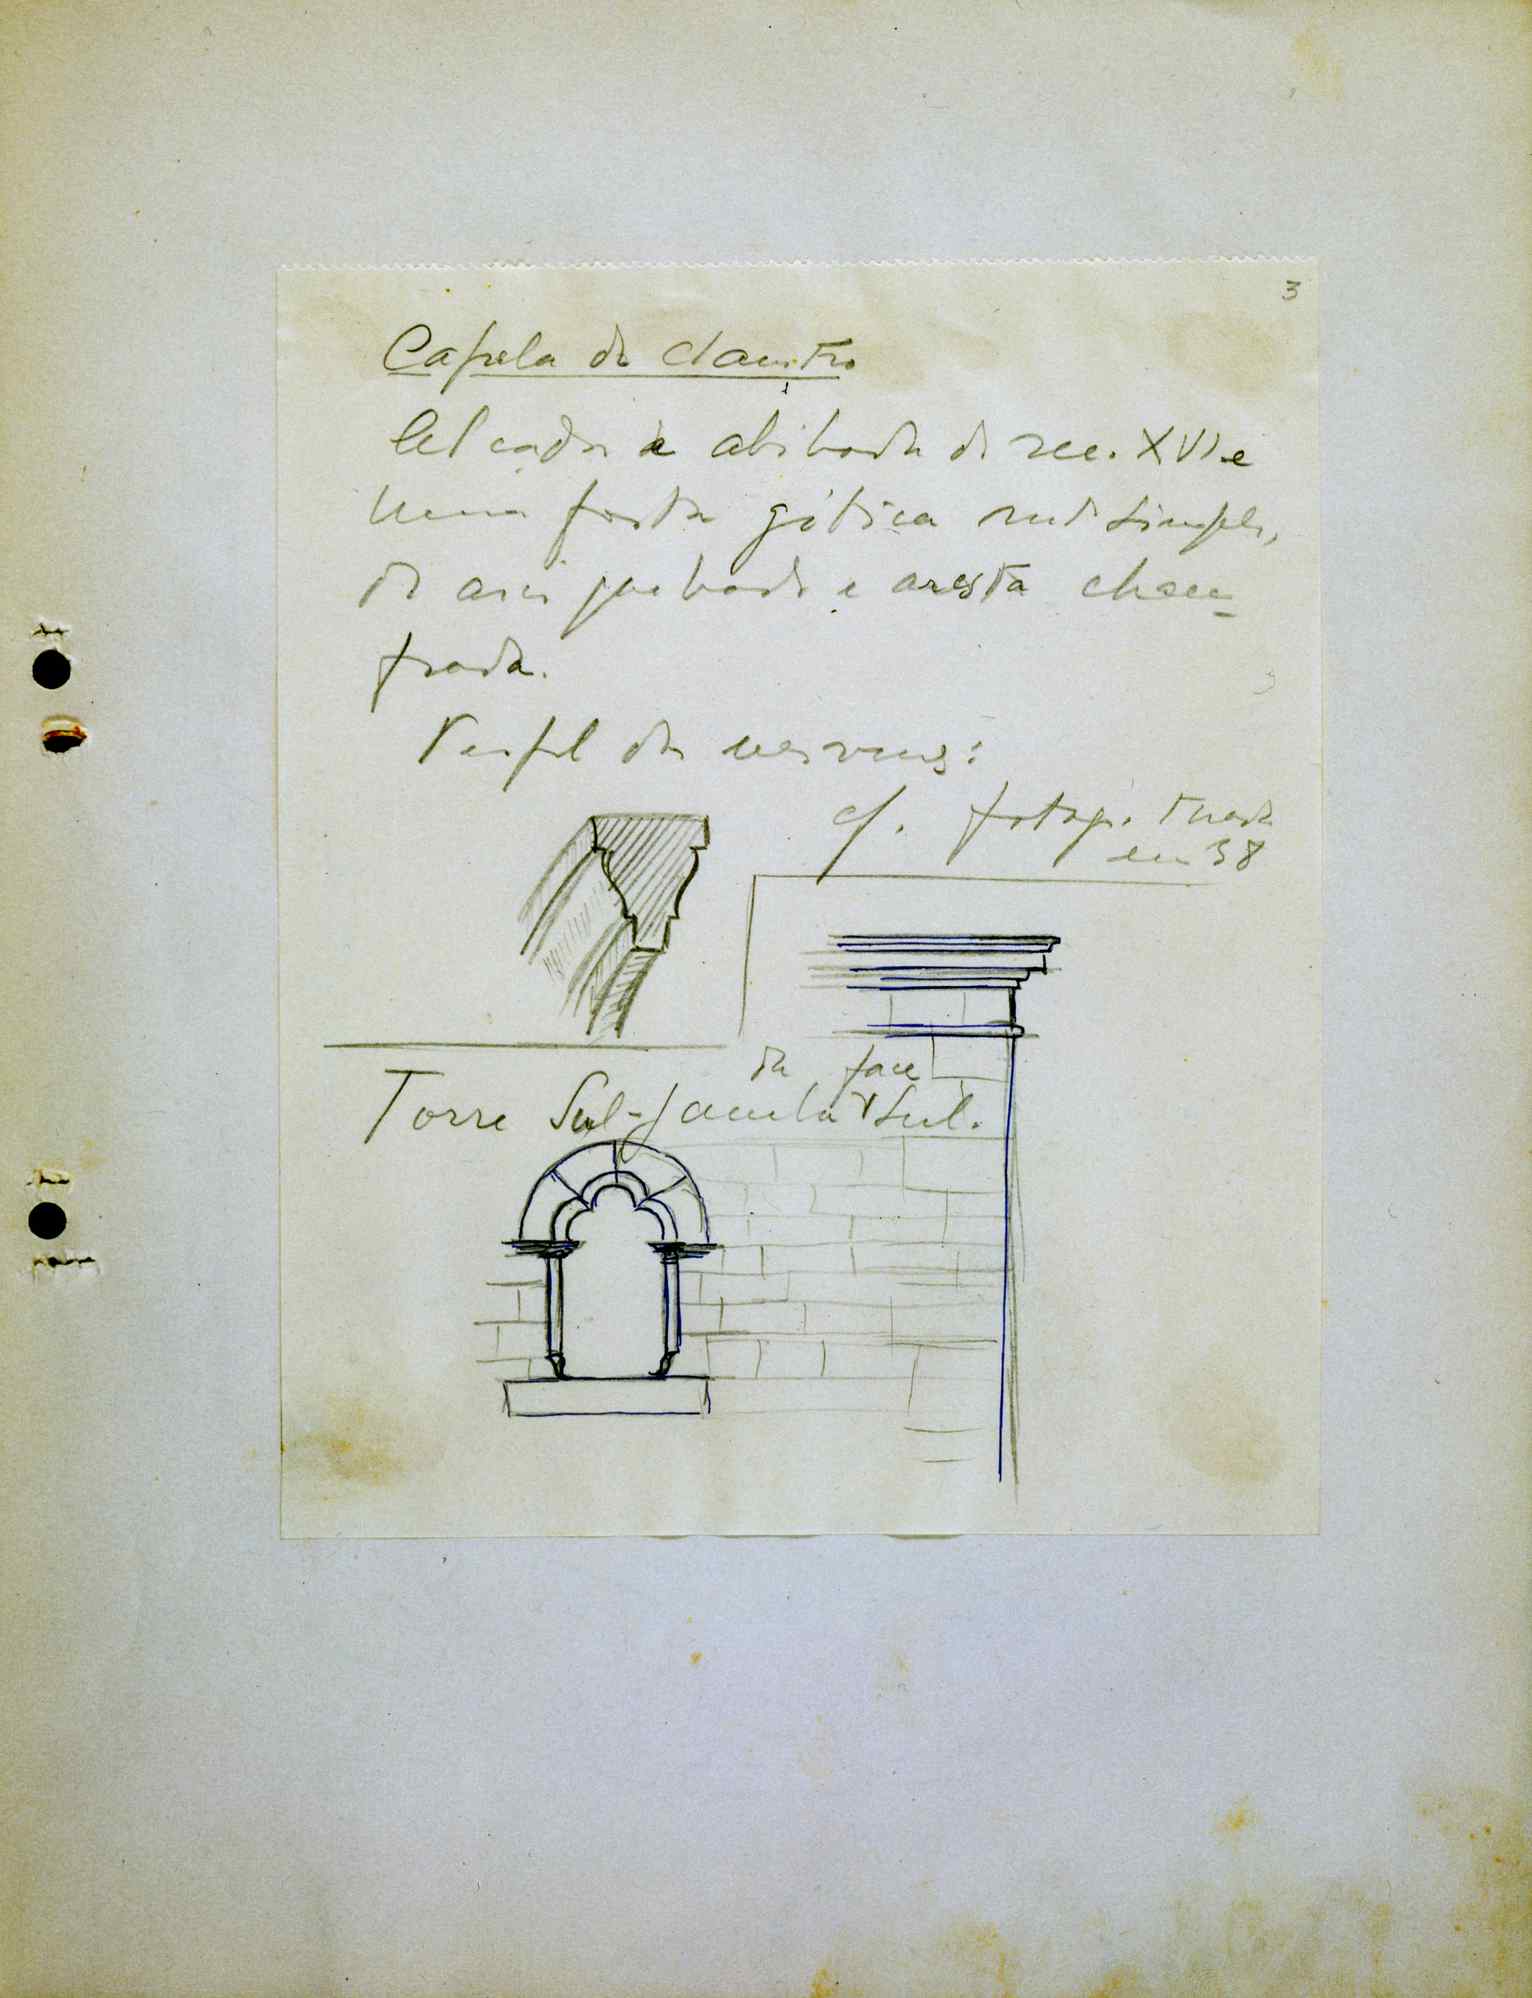 3
Capela do claustro
abóbada do sec. XVI e
uma porta gótica mt simples,
de arco quebrado e aresta chan-
frada.
Perfil das nervuras:
cf. fotogr. tirada
em 38
da face
Torre Sul - janela Sul.